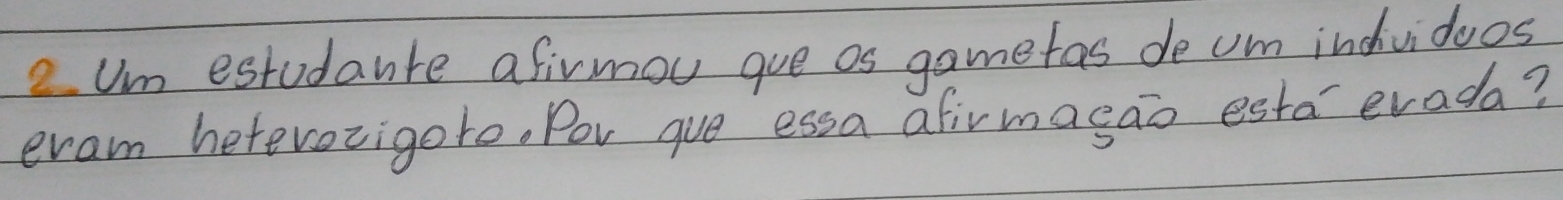 2. Um estudante afirmou que os gametas de um indivíduos
eram heterozigoto. Por que essa afirmação está erada?